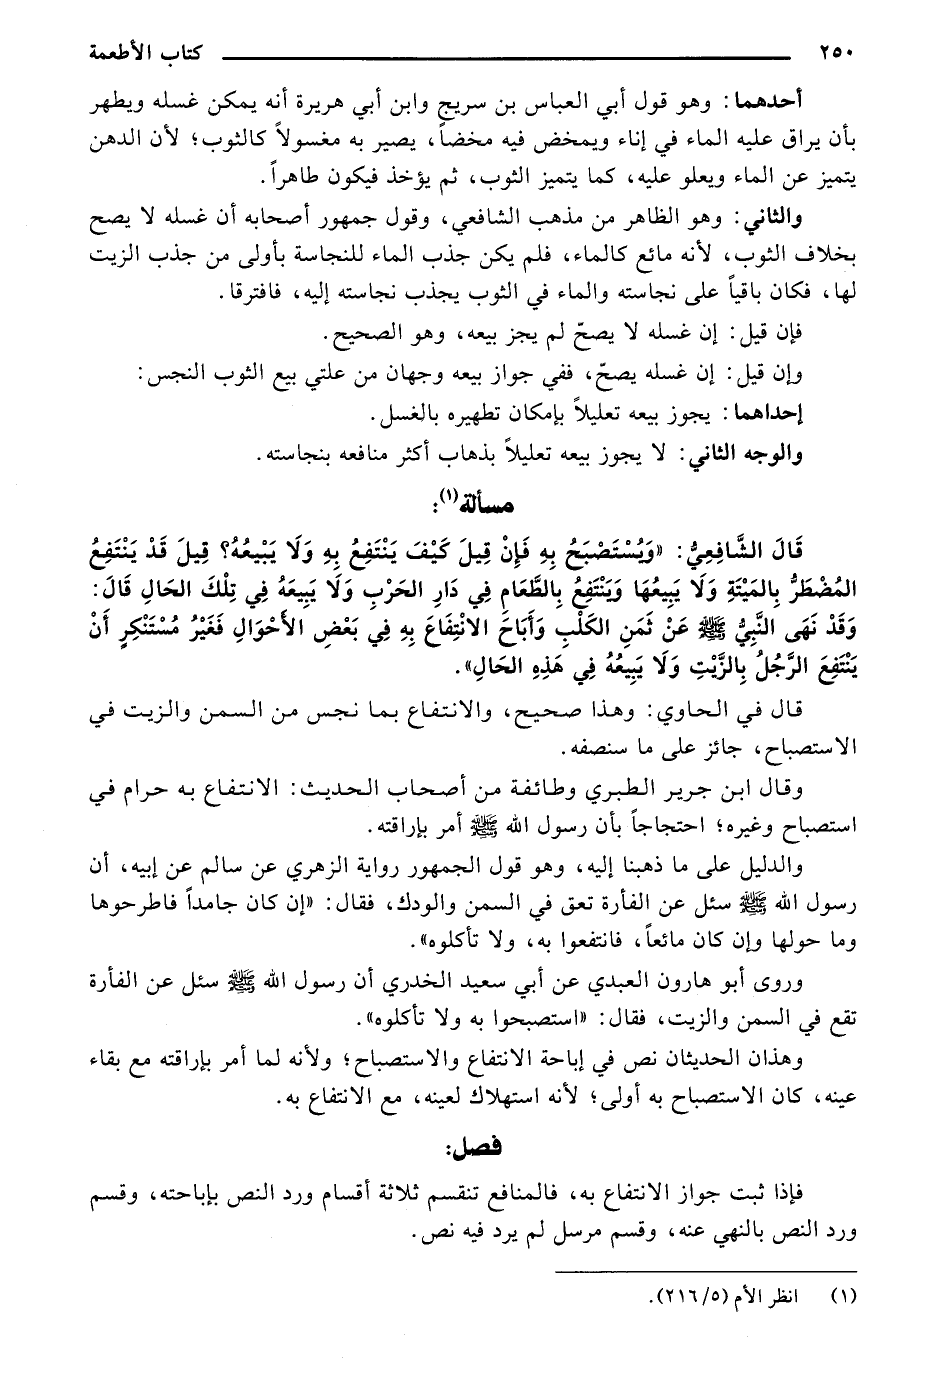 ٢٥٠ كتاب الأطعمة
أحدهما: وهو قول أبي العباس بن سريج وابن أبي هريرة أنه يمكن غسله ويطهر
بأن يراق عليه الماء في إناء ويمخض فيه مخضاً، يصير به مغسولاً كالثوب؛ لأن الدهن
يتميز عن الماء ويعلو عليه، كما يتميز الثوب، ثم يؤخذ فيكون طاهراً.
والثاني: وهو الظاهر من مذهب الشافعي، وقول جمهور أصحابه أن غسله لا يصح
بخلاف الثوب، لأنه مائع كالماء، فلم يكن جذب الماء للنجاسة بأولى من جذب الزيت
لها، فكان باقياً على نجاسته والماء في الثوب يجذب نجاسته إليه، فافترقا.
فإن قيل: إن غسله لا يصحّ لم يجز بيعه، وهو الصحيح.
وإن قيل: إن غسله يصحّ، ففي جواز بيعه وجهان من علتي بيع الثوب النجس:
إحداهما: يجوز بيعه تعليلاً بإمكان تطهيره بالغسل.
والوجه الثاني: لا يجوز بيعه تعليلاً بذهاب أكثر منافعه بنجاسته.
مسألة(١):
قَالَ الشَّافِعِيُّ: «وَيُسْتَصْبَحُ بِهِ فَإِنْ قِيلَ كَيْفَ يَنْتَفِعُ بِهِ وَلَا يَبْيعُهُ؟ قِيلَ قَدْ يَنْتَفِعُ
المُضْطَرُّ بِالمَيْتَةِ وَلَا يَبِيعُهَا وَيَنْتَفِعُ بِالطَّعَامِ فِي دَارِ الحَرْبِ وَلَا يَبِيعَهُ فِي تِلْكَ الحَالِ قَالَ:
وَقَدْ نَهَى النَّبِيُّ ﷺ عَنْ ثَمَنِ الكَلْبِ وَأَبَاحَ الانْتِفَاعَ بِهِ فِي بَعْضِ الأَحْوَالِ فَغَيْرُ مُسْتَنْكِرٍ أَنْ
يَنْتَفِعَ الرَّجُلُ بِالزَّيْتِ وَلَا يَبِيعُهُ فِي هَذِهِ الحَالِ».
قال في الحاوي: وهذا صحيح، والانتفاع بما نجس من السمن والزيت في
الاستصباح، جائز على ما سنصفه.
وقال ابن جرير الطبري وطائفة من أصحاب الحديث: الانتفاع به حرام في
استصباح وغيره؛ احتجاجاً بأن رسول الله ﷺ أمر بإراقته.
والدليل على ما ذهبنا إليه، وهو قول الجمهور رواية الزهري عن سالم عن إبيه، أن
رسول الله ﷺ سئل عن الفأرة تعق في السمن والودك، فقال: «إن كان جامداً فاطرحوها
وما حولها وإن كان مائعاً، فانتفعوا به، ولا تأكلوه».
وروى أبو هارون العبدي عن أبي سعيد الخدري أن رسول الله ﷺ سئل عن الفأرة
تقع في السمن والزيت، فقال: «استصبحوا به ولا تأكلوه».
وهذان الحديثان نص في إباحة الانتفاع والاستصباح؛ ولأنه لما أمر بإراقته مع بقاء
عينه، كان الاستصباح به أولى؛ لأنه استهلاك لعينه، مع الانتفاع به.
فصل:
فإذا ثبت جواز الانتفاع به، فالمنافع تنقسم ثلاثة أقسام ورد النص بإباحته، وقسم
ورد النص بالنهي عنه، وقسم مرسل لم يرد فيه نص.
(١) انظر الأم (٥/٢١٦).